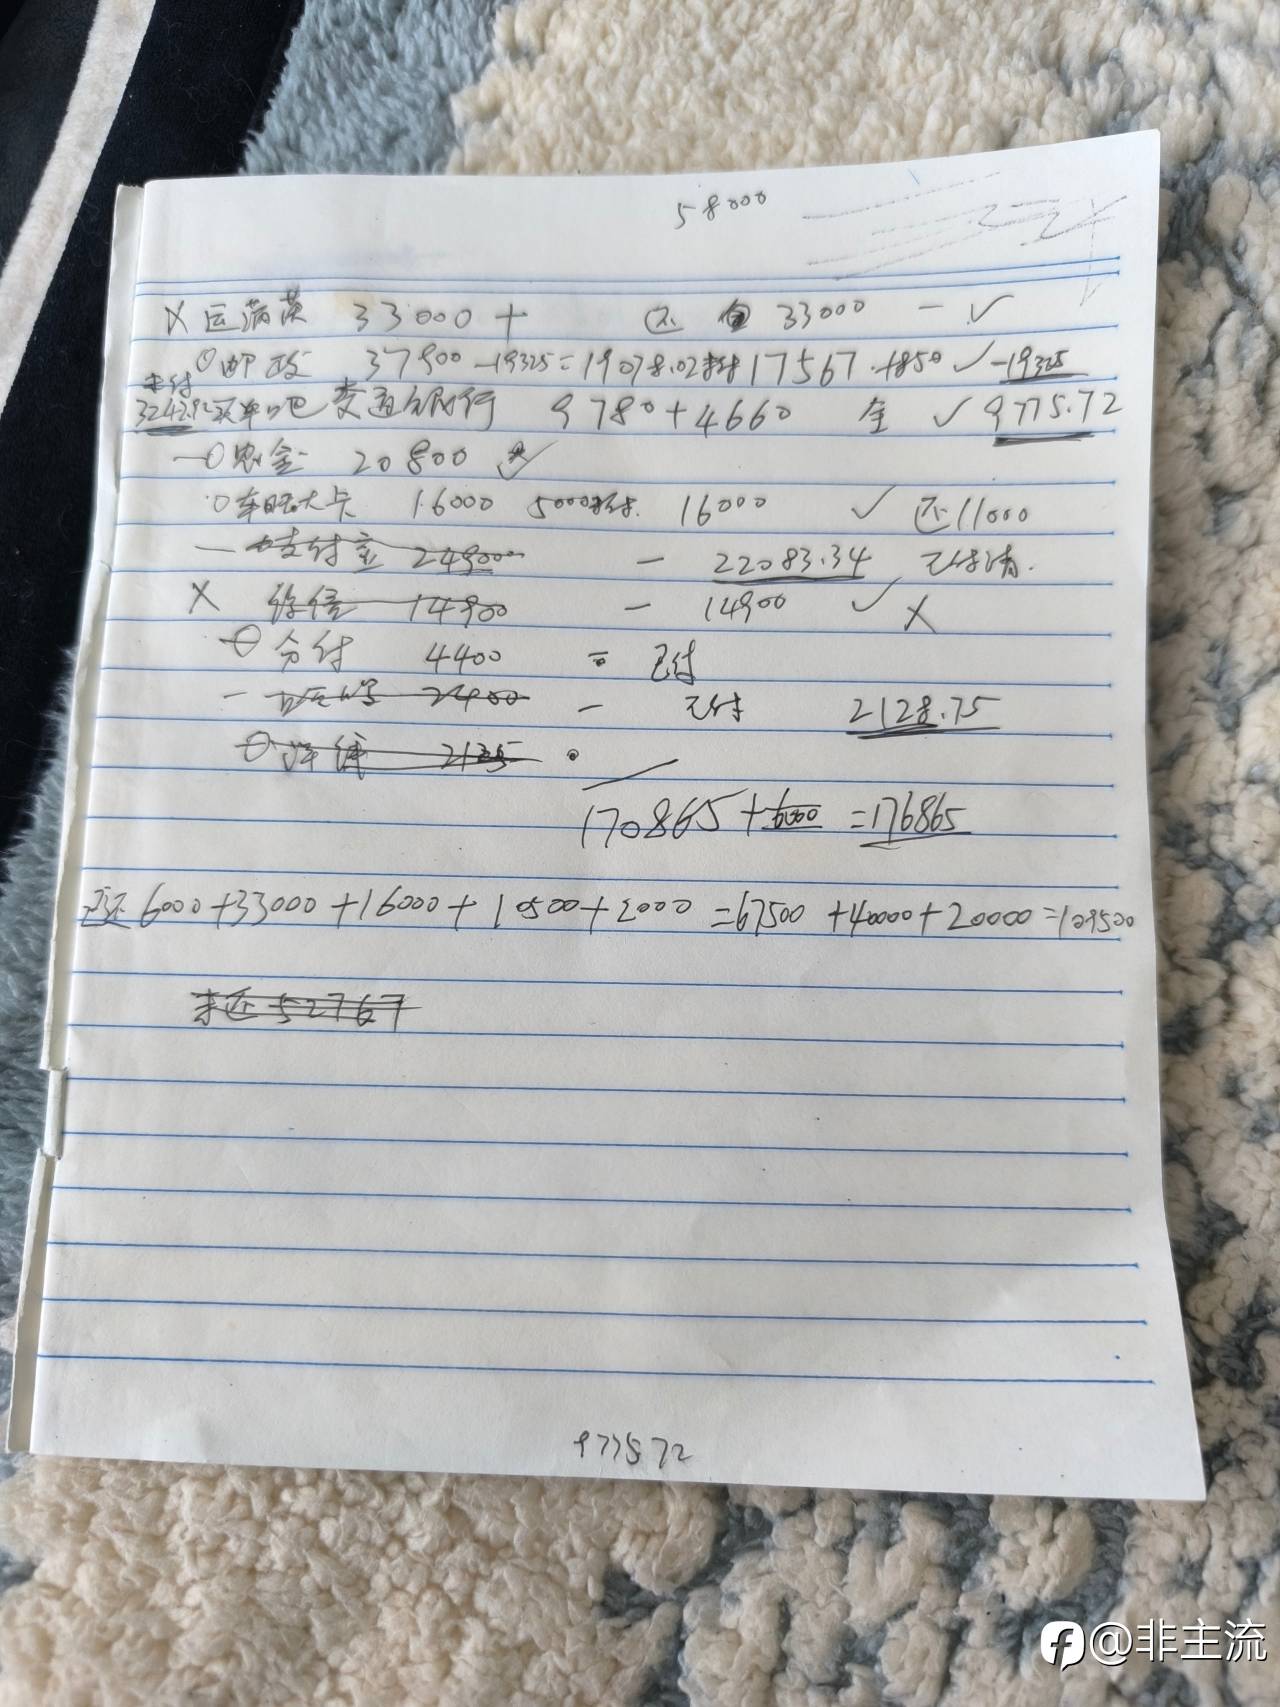 58000
X 运满满 33000 + 还 33000 - ✓
邮政 37900 -19325=19078.02 17567.+1850 ✓ -19325
未付
3242.92 买单吧 交通银行 9780+4660 全 ✓ 9775.72
一 农金 20800
车旺大卡 16000 5000 未付. 16000 ✓ 还11000
一 支付宝 24900 - 22083.34 已付清.
X 14900 - 14900 ✓ X
分付 4400 = 已付
- 2400 - 已付 2128.75
洋钱 2135
170865+6000=176865
还 6000+33000+16000+10500+2000=67500+40000+20000=109500
未还52767
977572
@非主流